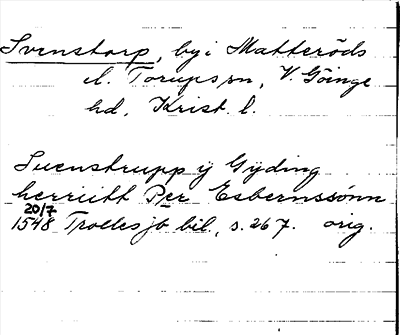 Svenstorp, by i Matteröds
el. Torups sn, V. Göinge
hd, Krist. l.
Suenstrupp ÿ Gÿding
herriitt Per Esbernssønn
20/7
1548 Trolles jb bil., s. 267. orig.